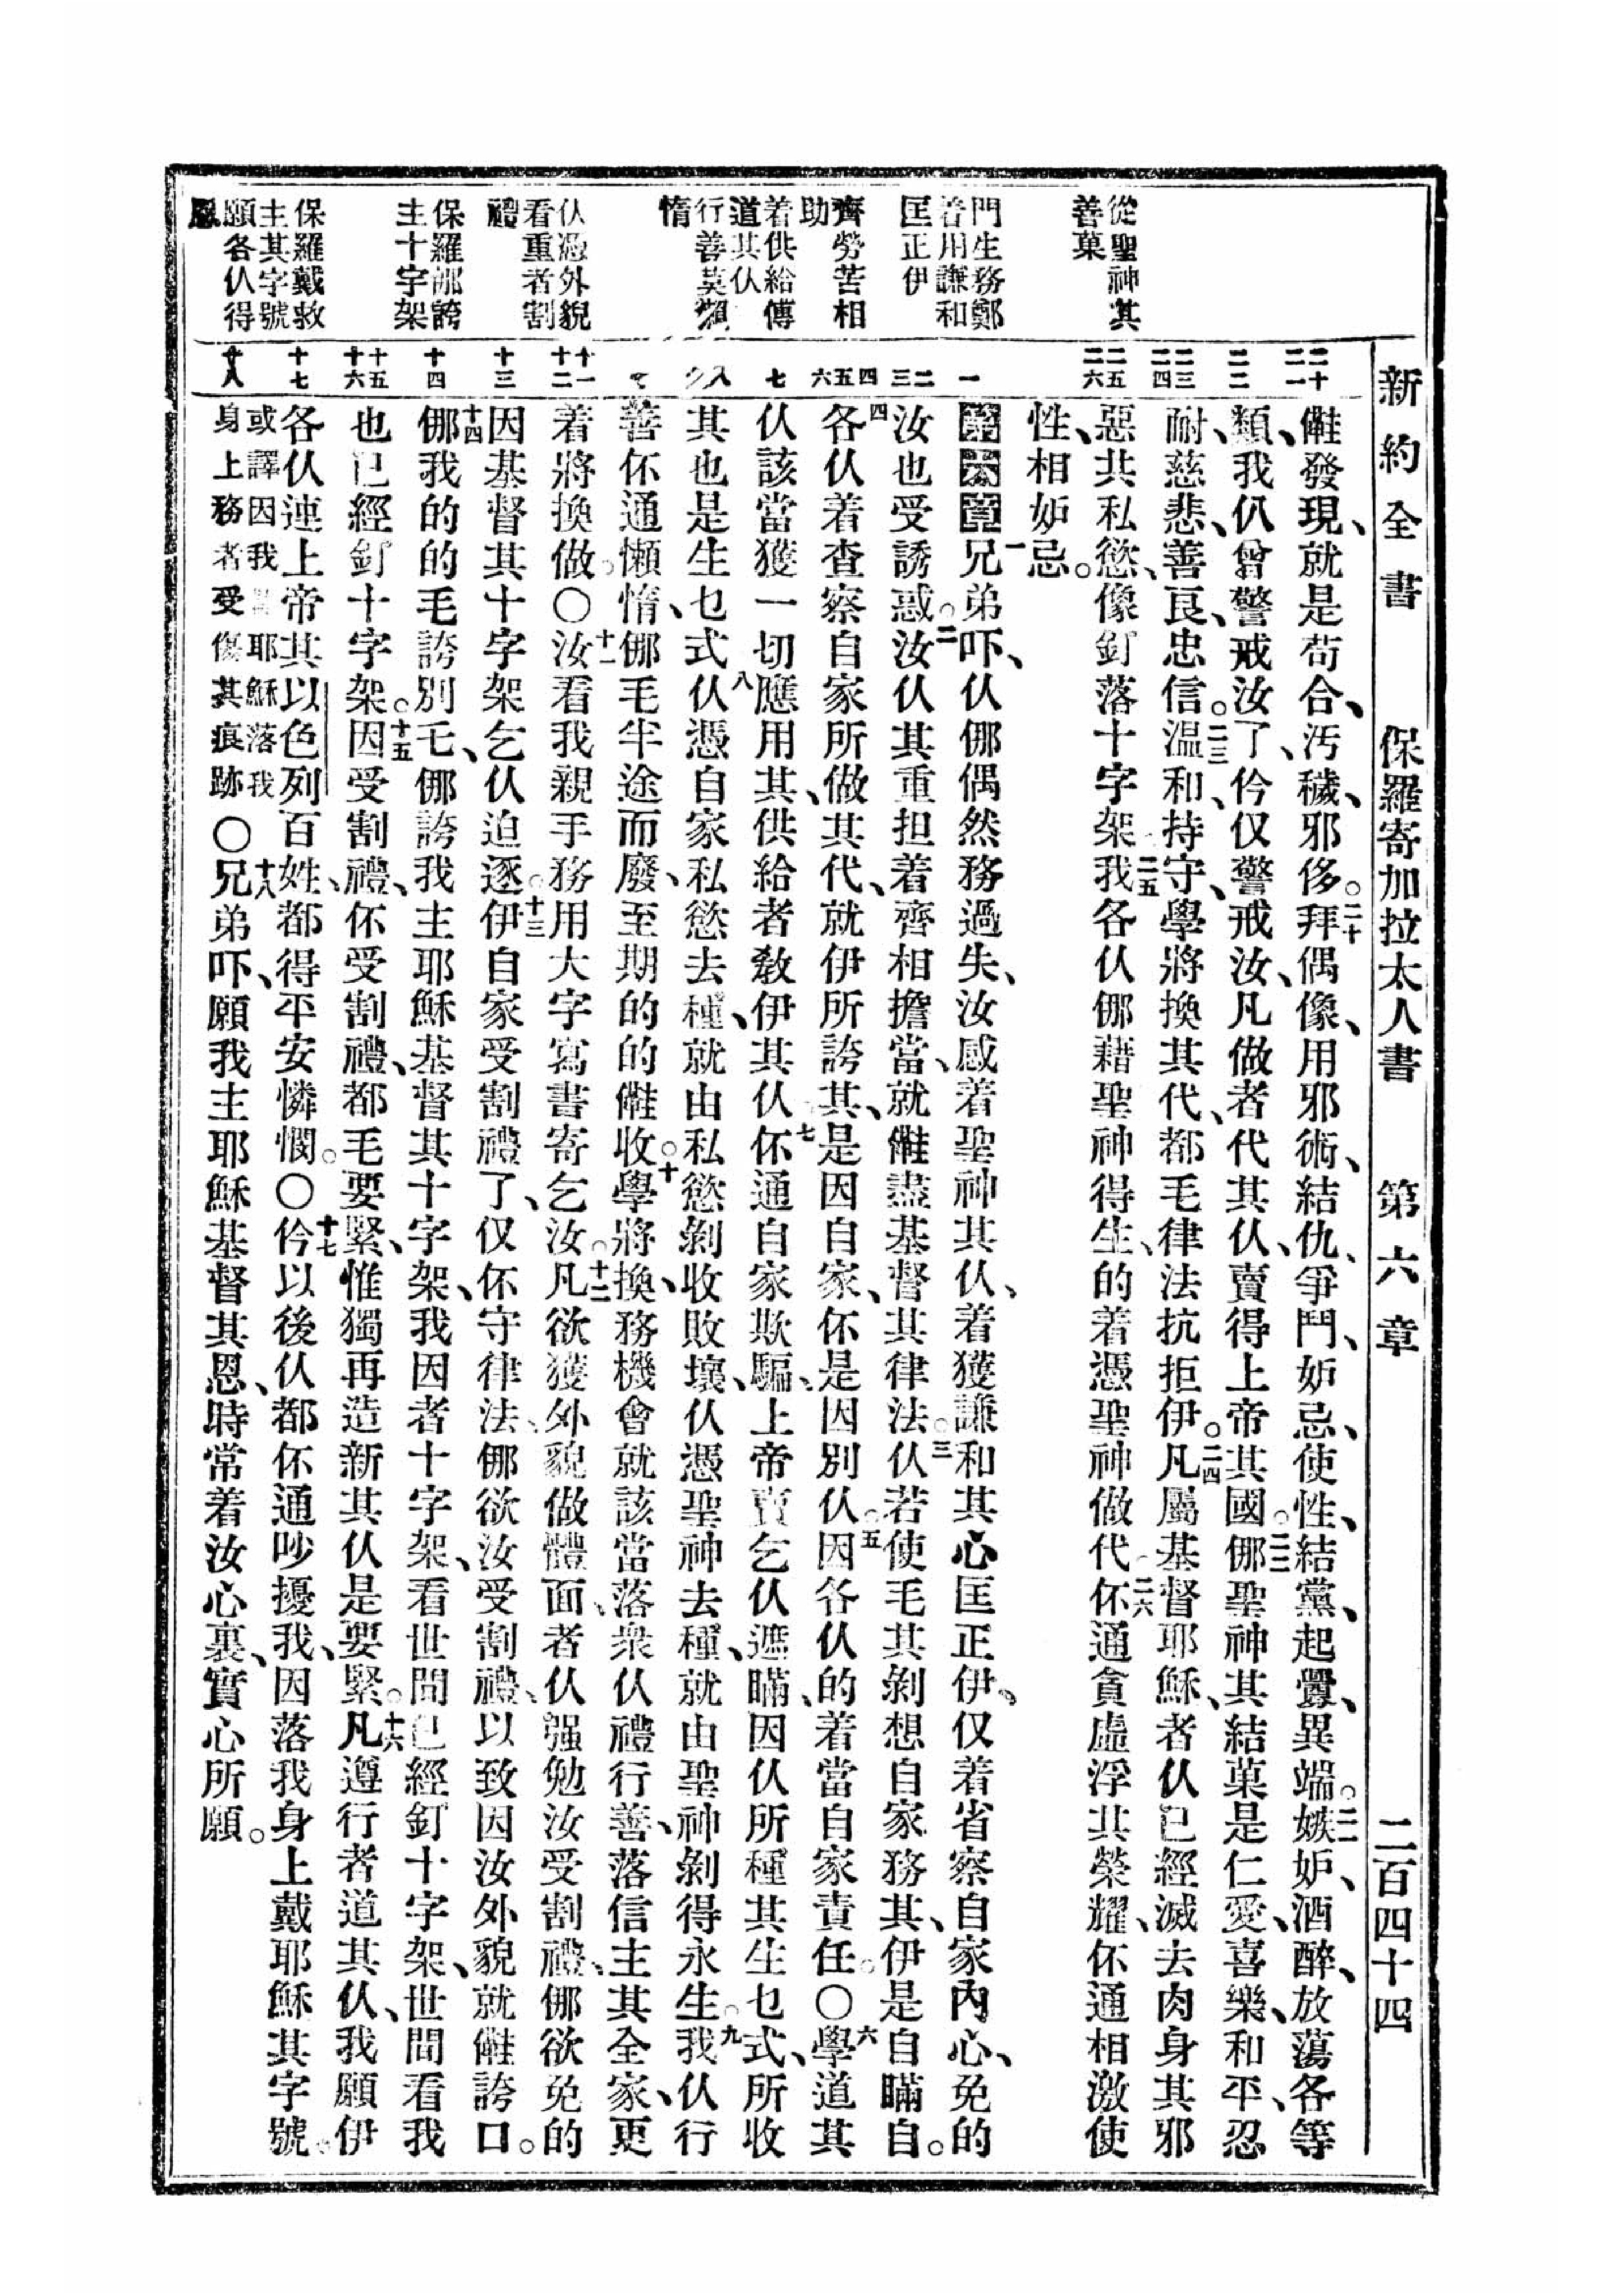 新約全書 保羅寄加拉太人書 第六章 二百四十四
從聖神其
善菓
門生務鄭
着用謙和
匡正伊
齊勞苦相
助
着供給傳
道其仈
行善莫懶
惰
仈憑外貌
看重者割
禮
保羅那誇
主十字架
保羅戴救
主其字號
願各仈得
恩
二十 二一 二二 二三 二四 二五 二六 一 二 三 四 五 六 七 八 十一 十二 十三 十四 十五 十六 十七 十八
㒕發現、就是苟合、汚穢、邪侈。二十拜偶像、用邪術、結仇、爭鬥、妒忌、使性、結黨、起釁、異端。二一嫉妒、酒醉、放蕩各等
類、我仈曾警戒汝了、仱仅警戒汝、凡做者代其仈、賣得上帝其國。二二㑚聖神其結菓是仁愛、喜樂、和平、忍
耐、慈悲、善良、忠信。二三温和、持守、學將換其代、都毛律法抗拒伊。二四凡屬基督耶穌、者仈已經滅去肉身其邪
惡共私慾、像釘落十字架。二五我各仈㑚藉聖神得生、的着憑聖神做代。二六伓通貪虛浮其榮耀、伓通相激使
性、相妒忌。
第六章 一兄弟吓、仈㑚偶然務過失、汝感着聖神其仈、着獲謙和其心匡正伊、仅着省察自家內心、免的
汝也受誘惑。二汝仈其重担着齊相擔當、就㒕盡基督其律法。三仈若使毛其剝想自家務其、伊是自瞞自。
四各仈着查察自家所做其代、就伊所誇其、是因自家、伓是因別仈。五因各仈的着當自家責任。〇六學道其
仈該當獲一切應用其、供給者敎伊其仈。七伓通自家欺騙、上帝賣乞仈遮瞞、因仈所種其生乜式、所收
其也是生乜式。八仈憑自家私慾去種、就由私慾剝收敗壞、仈憑聖神去種、就由聖神剝得永生。九我仈行
善伓通懶惰、㑚毛半途而廢、至期的的㒕收。十學將換、務機會就該當落衆仈禮行善、落信主其全家、更
着將換做。〇十一汝看我親手務用大字寫書寄乞汝。十二凡欲獲外貌做體面、者仈强勉汝受割禮、㑚欲免的
因基督其十字架乞仈迫逐。十三伊自家受割禮了、仅伓守律法、㑚欲汝受割禮、以致因汝外貌就㒕誇口。
十四㑚我的的毛誇別乇、㑚誇我主耶穌基督其十字架、我因者十字架、看世間已經釘十字架、世間看我
也已經釘十字架。十五因受割禮、伓受割禮、都毛要緊、惟獨再造新其仈是要緊。十六凡遵行者道其仈、我願伊
各仈連上帝其以色列百姓、都得平安憐憫。〇十七仱以後仈都伓通吵擾我、因落我身上戴耶穌其字號。
或譯因我耶穌落我
身上務者受傷其痕跡〇十八兄弟吓、願我主耶穌基督其恩、時常着汝心裏、實心所願。